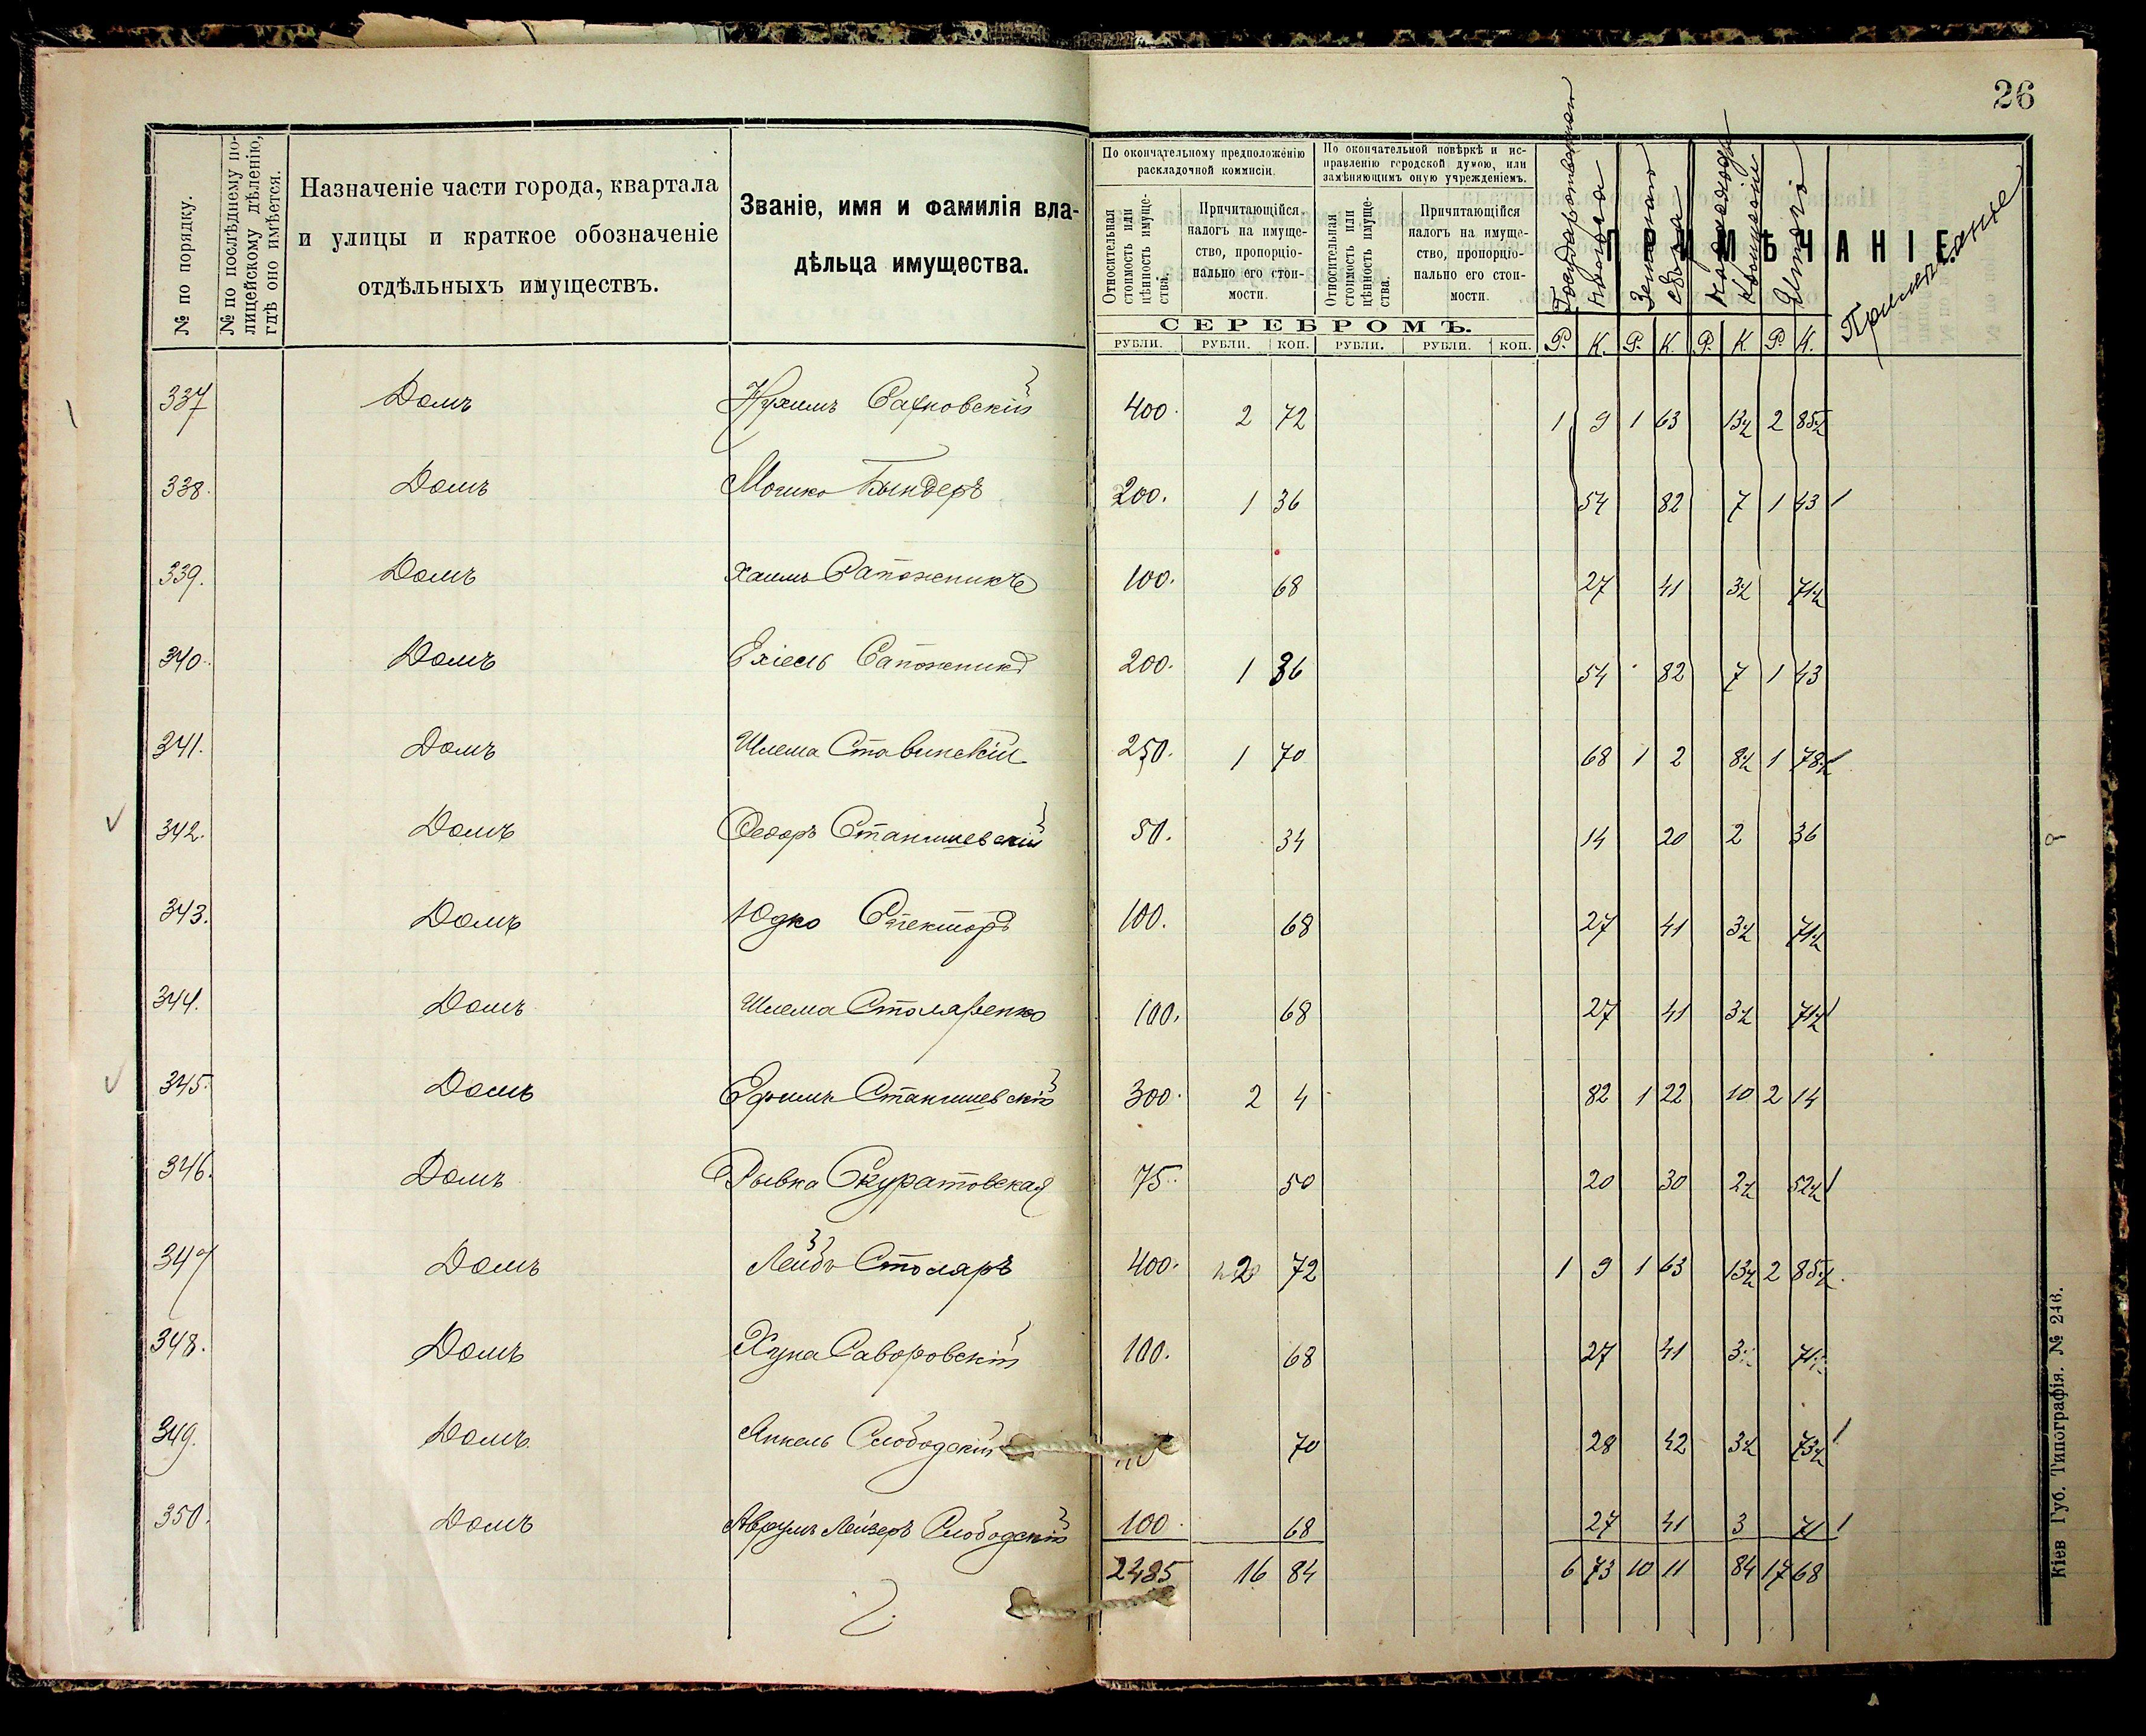 26
№ по порядку.
№ по послѣднему по-
лицейскому дѣленію,
гдѣ оно имѣется.
Назначеніе части города, квартала
и улицы и краткое обозначеніе
отдѣльныхъ имуществъ.
Званіе, имя и фамилія вла-
дѣльца имущества.
По окончательному предположенію
раскладочной коммисіи.
Относительная
стоимость или
цѣнность имуще-
ства.
Причитающійся
налогъ на имуще-
ство, пропорціо-
нально его стои-
мости.
По окончательной повѣркѣ и ис-
правленію городской думою, или
замѣняющимъ оную учрежденіемъ.
Относительная
стоимость или
цѣнность имуще-
ства.
Причитающійся
налогъ на имуще-
ство, пропорціо-
нально его стои-
мости.
ПРИМѢЧАНІЕ.
Земскаго
сбора
Итого
Примѣчаніе
СЕРЕБРОМЪ.
РУБЛИ. РУБЛИ. КОП. РУБЛИ. РУБЛИ. КОП. Р. К. Р. К. Р. К. Р. К.
337 Домъ Нухимъ 400. 2 72 1 9 1 63 13½ 2 85½
338. Домъ Мошко Биндеръ 200. 1 36 54 82 7 1 43
339. Домъ Хаимъ Сапожникъ 100. 68 27 41 3½ 71½
340. Домъ Ехіель Сапожникъ 200. 1 36 54 82 7 1 43
341. Домъ Шлема Ставинскій 250. 1 70 68 1 2 8½ 1 78½
342. Домъ Федоръ Станишевскій 50. 34 14 20 2 36
343. Домъ Юдко Спекторъ 100. 68 27 41 3½ 71½
344. Домъ Шлема Столяренко 100. 68 27 41 3½ 71½
345. Домъ Ефимъ Станишевскій 300. 2 4 82 1 22 10 2 14
346. Домъ Рывка Скуратовская 75. 50 20 30 2½ 52½
347 Домъ Лейбъ Столяръ 400. 2 72 1 9 1 63 13½ 2 85½
348. Домъ Саворовскій 100. 68 27 41 3½ 71½
349. Домъ Янкель Слободскій 70 28 42 3½ 73½
350. Домъ Аврумъ Лейзеръ Слободскій 100 68 27 41 3 71
2485 16 84 6 73 10 11 84 17 68
Кіев Губ. Типографія. № 246.